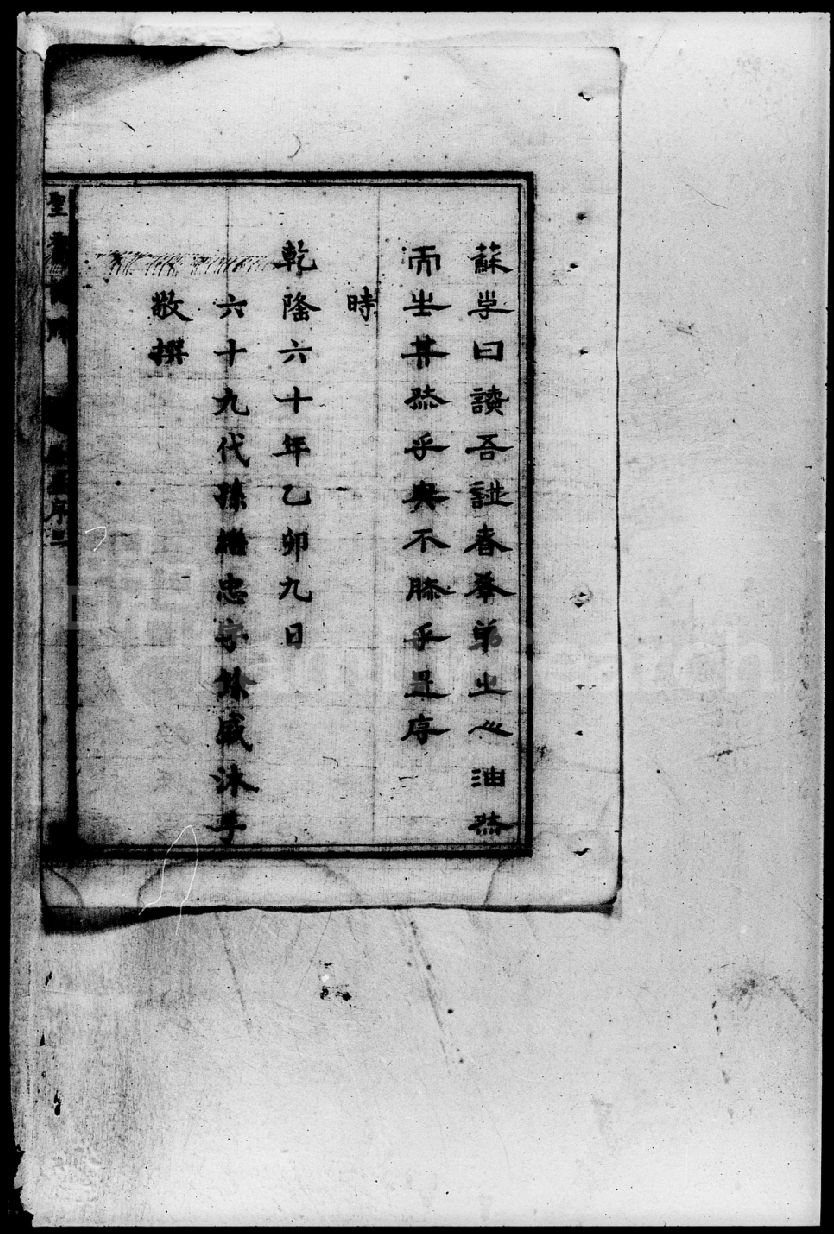 蘇子曰讀吾譜者孝弟之心油然
而生其然乎與不然乎是序
時
乾隆六十年乙卯九日
六十九代孫繼忠字盛沐手
敬撰
聖序三